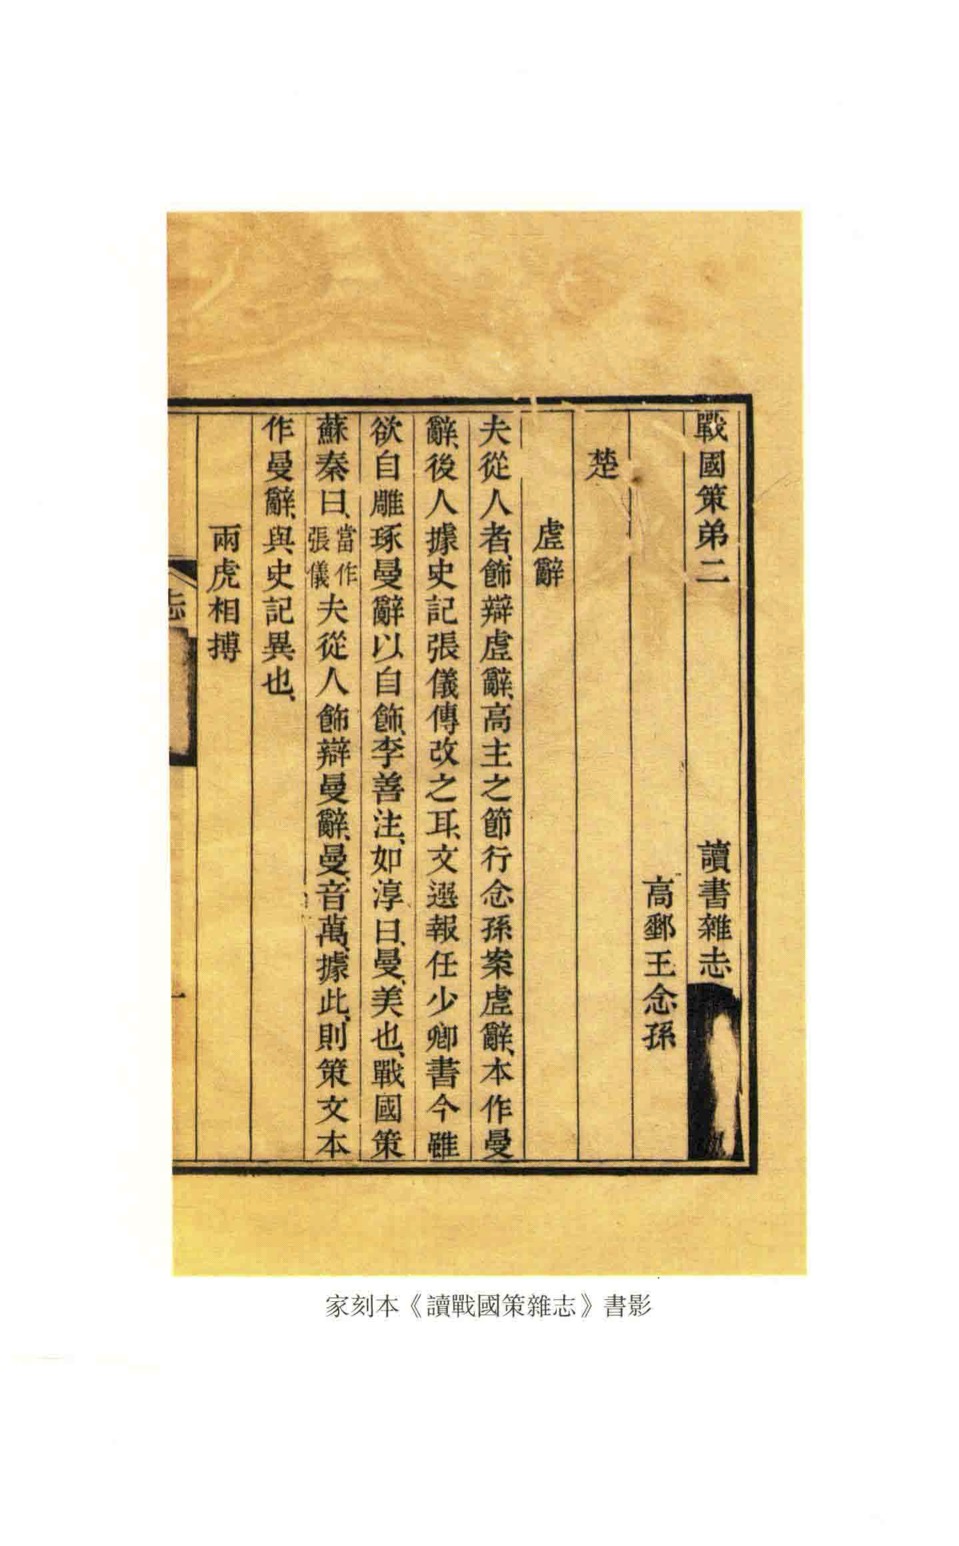 戰國策弟二 讀書雜志
高郵王念孫
楚
虛辭
夫從人者、飾辯虛辭、高主之節行念孫案虛辭、本作曼
辭、後人據史記張儀傳改之耳、文選報任少卿書今雖
欲自雕琢曼辭以自飾、李善注、如淳曰、曼、美也、戰國策
蘇秦曰、當作張儀夫從人飾辯曼辭、曼、音萬、據此、則策文本
作曼辭、與史記異也、
兩虎相搏
志
一
家刻本《讀戰國策雜志》書影